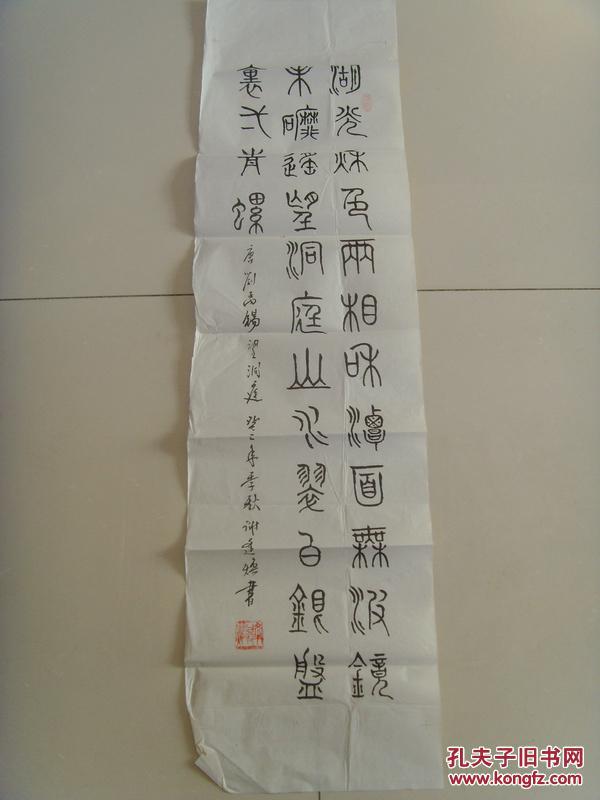 湖光秋色兩相和潭面無波鏡
未磨遙望洞庭山水翠白銀盤
裏弌青螺
唐劉禹錫望洞庭 癸巳年季秋 谢書
孔夫子旧书网
www.kongfz.com